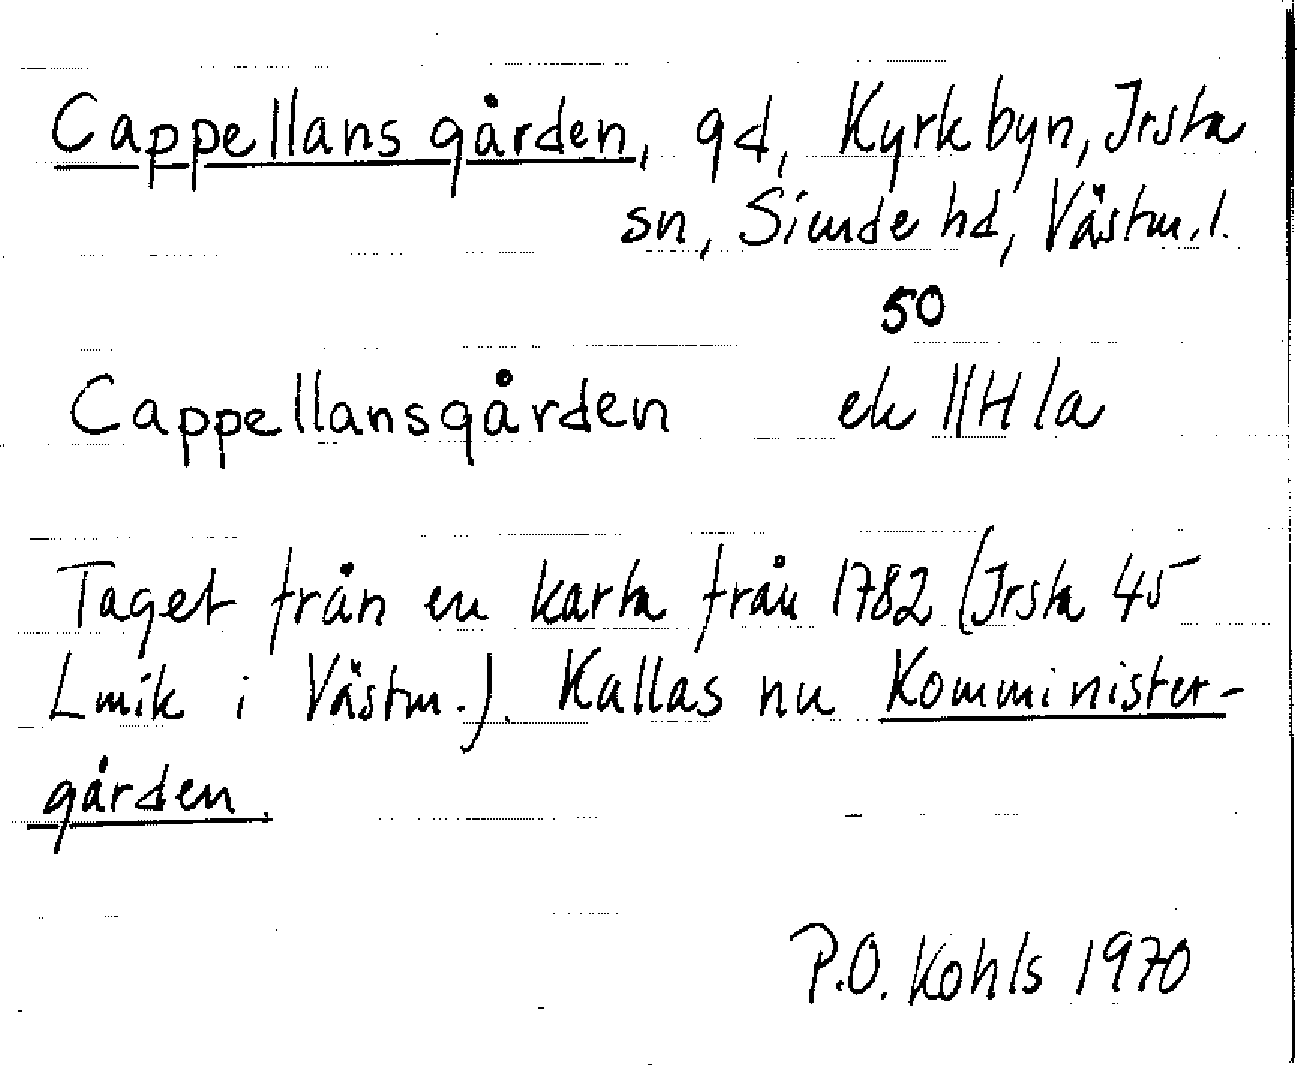 Cappellansgården, gd, Kyrkbyn, Irsta
sn, Siende hd, Västm.l.
50
Cappellansgården ek 11H1a
Taget från en karta från 1782 (Irsta 45
Lmik i Västm.). Kallas nu Komminister-
gården.
P.O. Kohls 1970